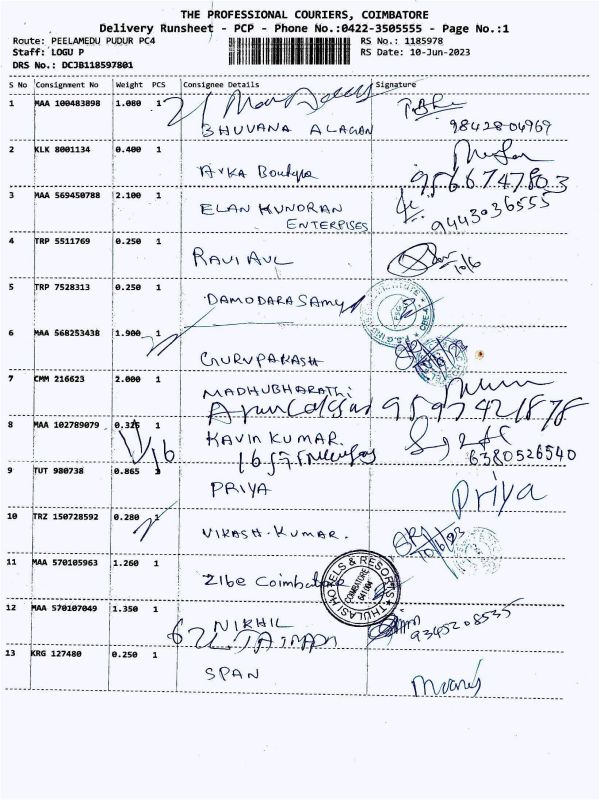 THE PROFESSIONAL COURIERS, COIMBATORE
Delivery Runsheet - PCP - Phone No.:0422-3505555 - Page No.:1
Route: PEELAMEDU PUDUR PC4 RS No.: 1185978
Staff: LOGU P RS Date: 10-Jun-2023
DRS No.: DCJB118597801
S No Consignment No Weight PCS Consignee Details Signature
1 MAA 100483898 1.080 1
BHUVANA ALAGAN 98428-04969
2 KLK 8001134 0.400 1
9566747803
3 MAA 569450788 2.100 1 ELAN KUNDRAN
ENTERPISES 9443036555
4 TRP 5511769 0.250 1 RAVI AVL
10/6
5 TRP 7528313 0.250 1 DAMODARASAMY
6 MAA 568253438 1.900 1
GURUPAKASH
7 CMM 216623 2.000 1 MADHUBHARATHI
9597421878
8 MAA 102789079 0.325 1 KAVIN KUMAR.
6380526540
9 TUT 980738 0.865
PRIYA Priya
10 TRZ 150728592 0.280 1
VIKASH-KUMAR.
11 MAA 570105963 1.260 1
Zibe Coimbatore
THULASI HOTELS & RESORTS
COIMBATORE
641 004
12 MAA 570107049 1.350 1 NIKHIL
9345208535
13 KRG 127480 0.250 1
SPAN